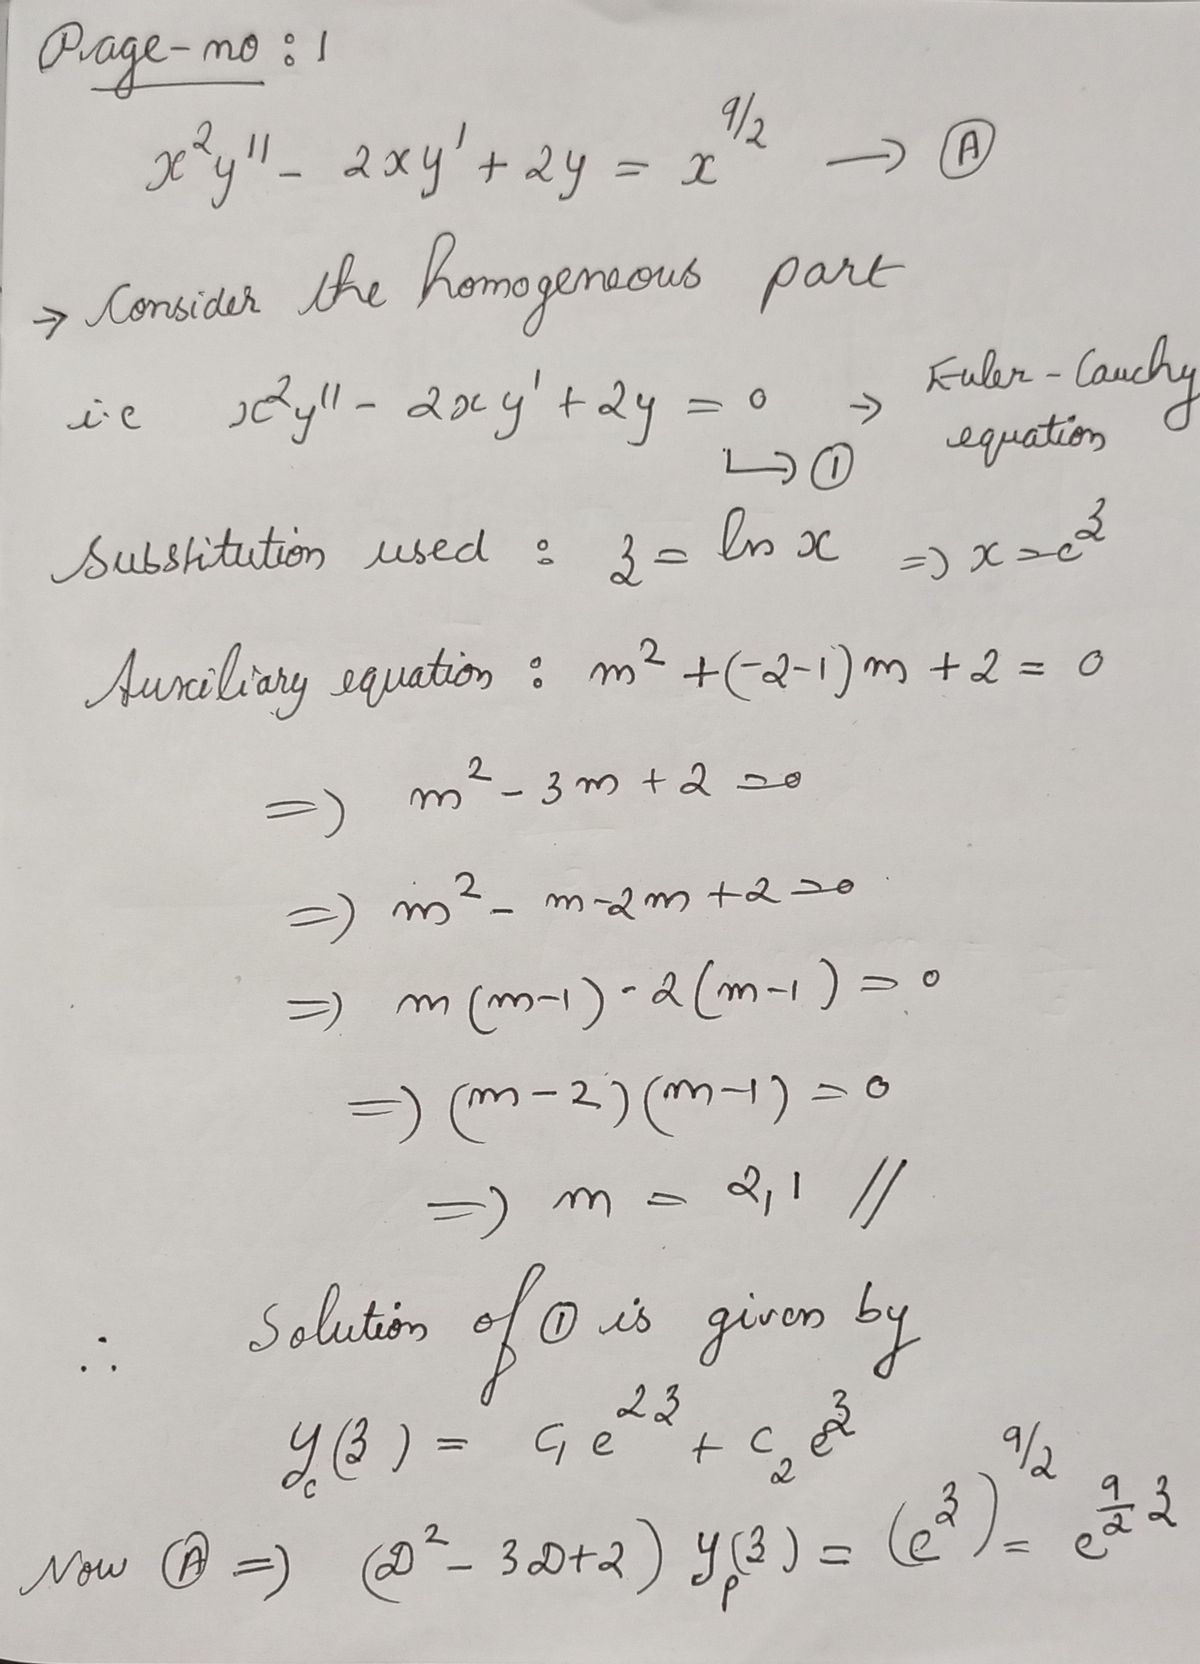 Page-no : 1
x²y'' - 2xy' + 2y = x^{9/2} → Ⓐ
→ Consider the homogeneous part
i.e x²y'' - 2xy' + 2y = 0 → Euler-Cauchy equation
↳ ①
Substitution used : z = ln x => x = e^z
Auxiliary equation : m² + (-2-1)m + 2 = 0
=> m² - 3m + 2 = 0
=> m² - m - 2m + 2 = 0
=> m(m-1) - 2(m-1) = 0
=> (m-2)(m-1) = 0
=> m = 2,1 //
∴ Solution of ① is given by
y_c(z) = c₁e^{2z} + c₂e^z
Now Ⓐ => (D² - 3D+2) y_p(z) = (e^z)^{9/2} = e^{\frac{9}{2}z}